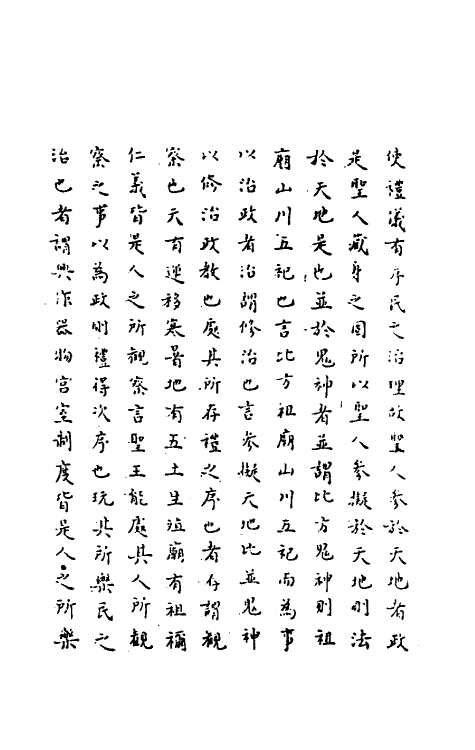 使禮儀有序民之治理故聖人參於天地者政
是聖人藏身之固所以聖人參擬於天地則法
於天地是也並於鬼神者並謂比方鬼神則祖
廟山川五祀也言比方祖廟山川五祀而為事
以治政者治謂修治也言參擬天地比並鬼神
以修治政教也處其所存禮之序也者存謂觀
察也天有運移寒暑地有五土生殖廟有祖禰
仁義皆是人之所觀察言聖王能處其人所觀
察之事以為政則禮得次序也玩其所樂民之
治也者謂興作器物宮室制度皆是人之所樂